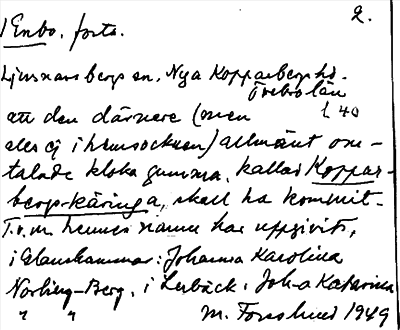 2.
Enbo, forts.
Ljusnarsbergs sn, Nya Kopparbergs hd.
Örebro län
att den därnere (men
eller ej i hemsocknen) allmänt om-
talade kloka gumma, kallad Koppar-
bergs-käringa, skall ha kommit.
T.o.m. hennes namn har uppgivits,
i Glanshammar: Johanna Karolina
Norling-Berg, i Lerbäck: Joh-a Katarina
" " M. Forslund 1949